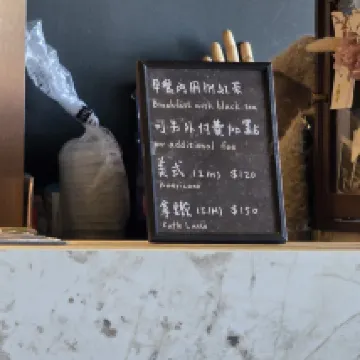 早餐內用附紅茶
Breakfast with black tea
可另外付費加點
pr additional fee
美式 (2H) $120
Americano
拿鐵 (2H) $150
Caffe Latte